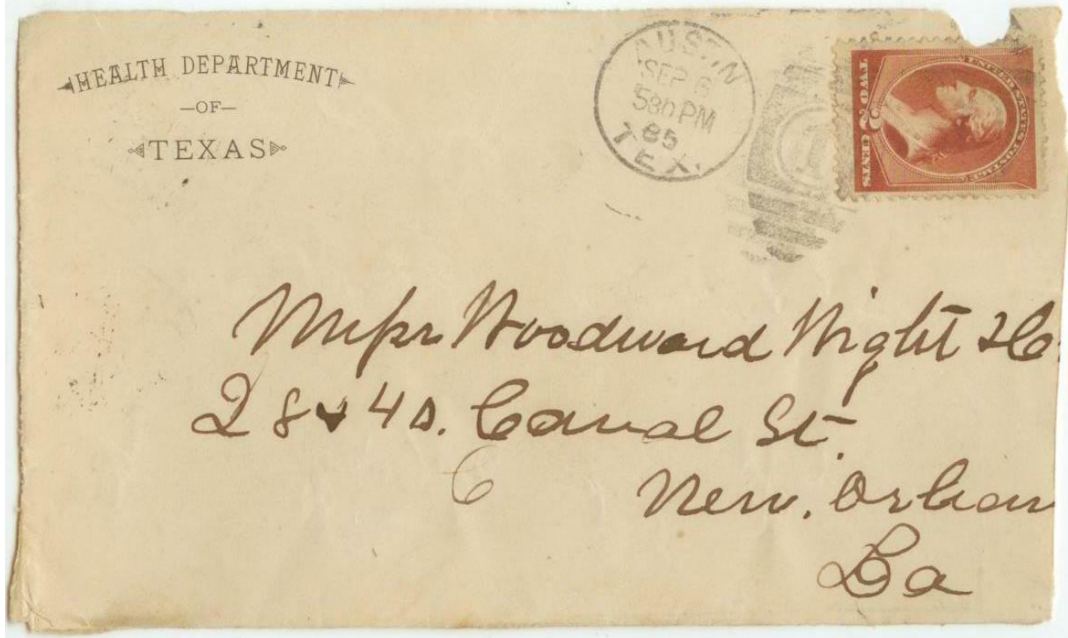 HEALTH DEPARTMENT
—OF—
TEXAS
AUSTIN
SEP 6
530 PM
85
TEX.
1
UNITED STATES POSTAGE
TWO 2 CENTS
Messrs Woodward Wight & Co
28 & 40. Canal St.
New. Orlean
La